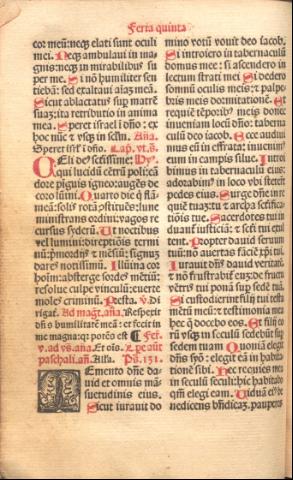 Feria quinta
cor meũ: neqꝫ elati sunt oculi
mei. Neqꝫ ambulaui in ma-
gnis: neqꝫ in mirabilibus su
per me. Si nõ humiliter sen
tiebã: sed exaltaui aĩaꝫ meã.
Sicut ablactatus sup matrẽ
suaꝫ: ita retributio in anima
mea. Speret israel ĩ dño: ex
hoc nũc ⁊ vsqꝫ in sclm. Aña.
Speret isrl̃ ĩ dño.
Celi deꝰ sctissime: Hy.
qui lucidũ cẽtrũ poli: cã
dore pĩguis igneo: augẽs de
coro lũmi. Quarto die q flã
meã: solis rotã ꝯstituẽs: lune
ministrans ordini: vagos re
cursus syderũ. Ut noctibus
vel lumini: direptiõis termi
nũ: pmordijs ⁊ mẽsiũ: signuꝫ
dares notissimũ. Illumina cor
hoĩm: absterge sordes mẽtiũ:
resolue culpe vinculũ: euerte
moles criminũ. Presta. v. Di
rigat. Ad magt. aña. Respexit
dñs humilitatẽ meã: et fecit in
me magna: qꝛ potẽs est
paschali. añ. Alla. Ps. 131.
Memento dñe da-
uid et omnis mã
suetudinis eius.
Sicut iurauit do
mino votũ vouit deo iacob.
Si introiero in tabernaculũ
domus mee: si ascendero in
lectum strati mei Si dedero
somnũ oculis meis: ⁊ palpe
bris meis dormitationẽ. Et
requiẽ tẽporibꝰ meis donec
inueniam locũ dño: taberna
culũ deo iacob. Ecce audiui
mus eũ in effrata: inuenimꝰ
eum in campis silue. Introi
bimus in tabernaculũ eius:
adorabimꝰ in loco vbi stetert
pedes eius. Surge dñe in re
quiẽ tuaꝫ: tu ⁊ arca sctifica-
tiõis tue. Sacerdotes tui in
duant iusticiã: ⁊ scti tui exul
tent. Propter dauid seruum
tuũ: nõ auertas faciẽ xpi tui.
Iurauit dñs dauid veritatẽ
⁊ nõ frustrabit eũ: de fructu
vẽtris tui ponã sup sedẽ tuã.
Si custodierint filij tui testa
mẽtũ meũ: ⁊ testimonia mea
hec q docebo eos. Et filij eo
rũ vsqꝫ in seculũ sedebũt sup
sedem tuam. Quoniã elegit
dñs syõ: elegit eã in habita
tionẽ sibi. Hec requies mea
in seculũ seculi: hic habitabo
qm̃ elegi eam. Viduã eiꝰ be
nedicens bñdicaꝫ: pauperes